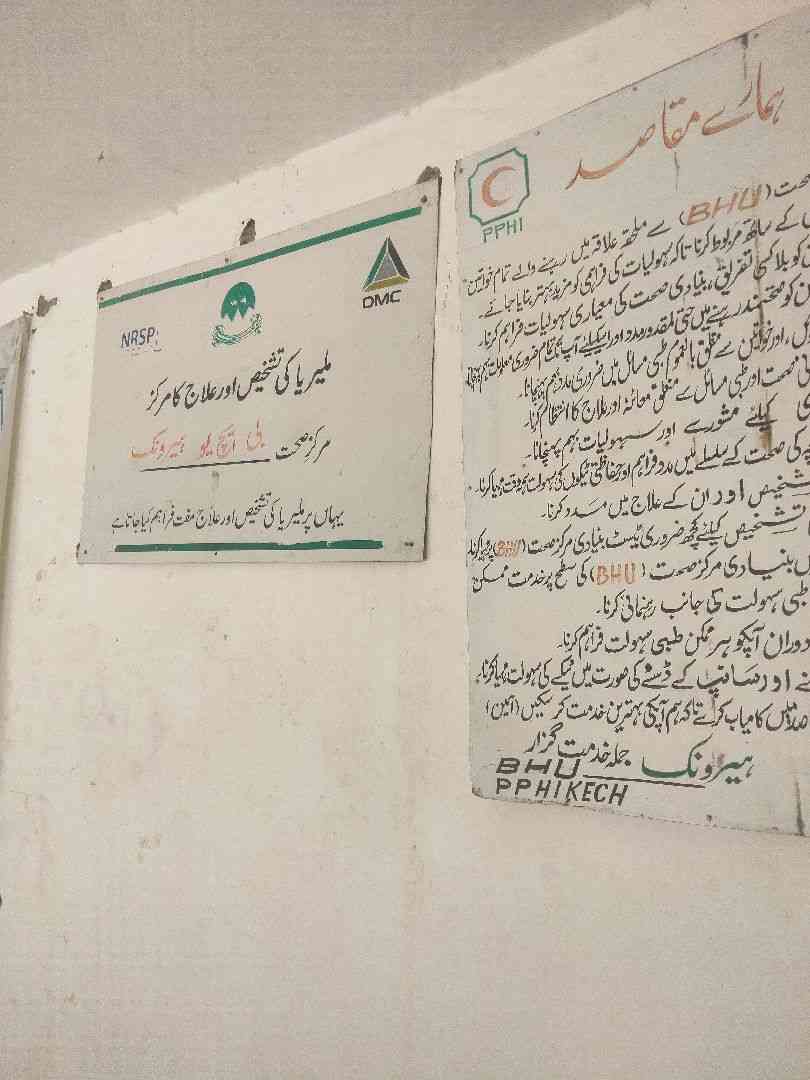 NRSP
DMC
ملیریا کی تشخیص اور علاج کا مرکز
مرکز صحت بی ایچ یو ہیرونک
یہاں پر ملیریا کی تشخیص اور علاج مفت فراہم کیا جاتا ہے
ہمارے مقاصد
PPHI
صحت (BHU) سے ملحقہ علاقہ میں رہنے والے تمام خواتین
کے ساتھ مربوط کرنا تاکہ سہولیات کی فراہمی کو مزید بہتر بنایا جائے۔
کو بلا کسی تفریق، بنیادی صحت کی معیاری سہولیات فراہم کرنا۔
کو صحتمند رہنے میں حتی المقدور مدد اور اسکیلئے آپ تک تمام ضروری معلومات بہم پہنچانا۔
اور خواتین سے متعلق بالعموم طبی مسائل میں ضروری مدد بہم پہنچانا۔
صحت اور طبی مسائل سے متعلق معائنہ اور علاج کا انتظام کرنا۔
کیلئے مشورے اور سہولیات بہم پہنچانا۔
کی صحت کے سلسلے میں مدد فراہم اور حفاظتی ٹیکوں کی سہولت بروقت مہیا کرنا۔
تشخیص اور ان کے علاج میں مدد کرنا۔
تشخیص کیلئے کچھ ضروری ٹیسٹ بنیادی مرکز صحت (BHU) پر مہیا کرنا۔
بنیادی مرکز صحت (BHU) کی سطح پر خدمت ممکن
طبی سہولت کی جانب رہنمائی کرنا۔
دوران آپکو ہر ممکن طبی سہولت فراہم کرنا۔
اور سانپ کے ڈسنے کی صورت میں ٹیکے کی سہولت مہیا کرنا۔
میں کامیاب کرے تاکہ ہم آپکی بہترین خدمت کر سکیں (آمین)
جملہ خدمت گزار
BHU ہیرونک
PPHI KECH